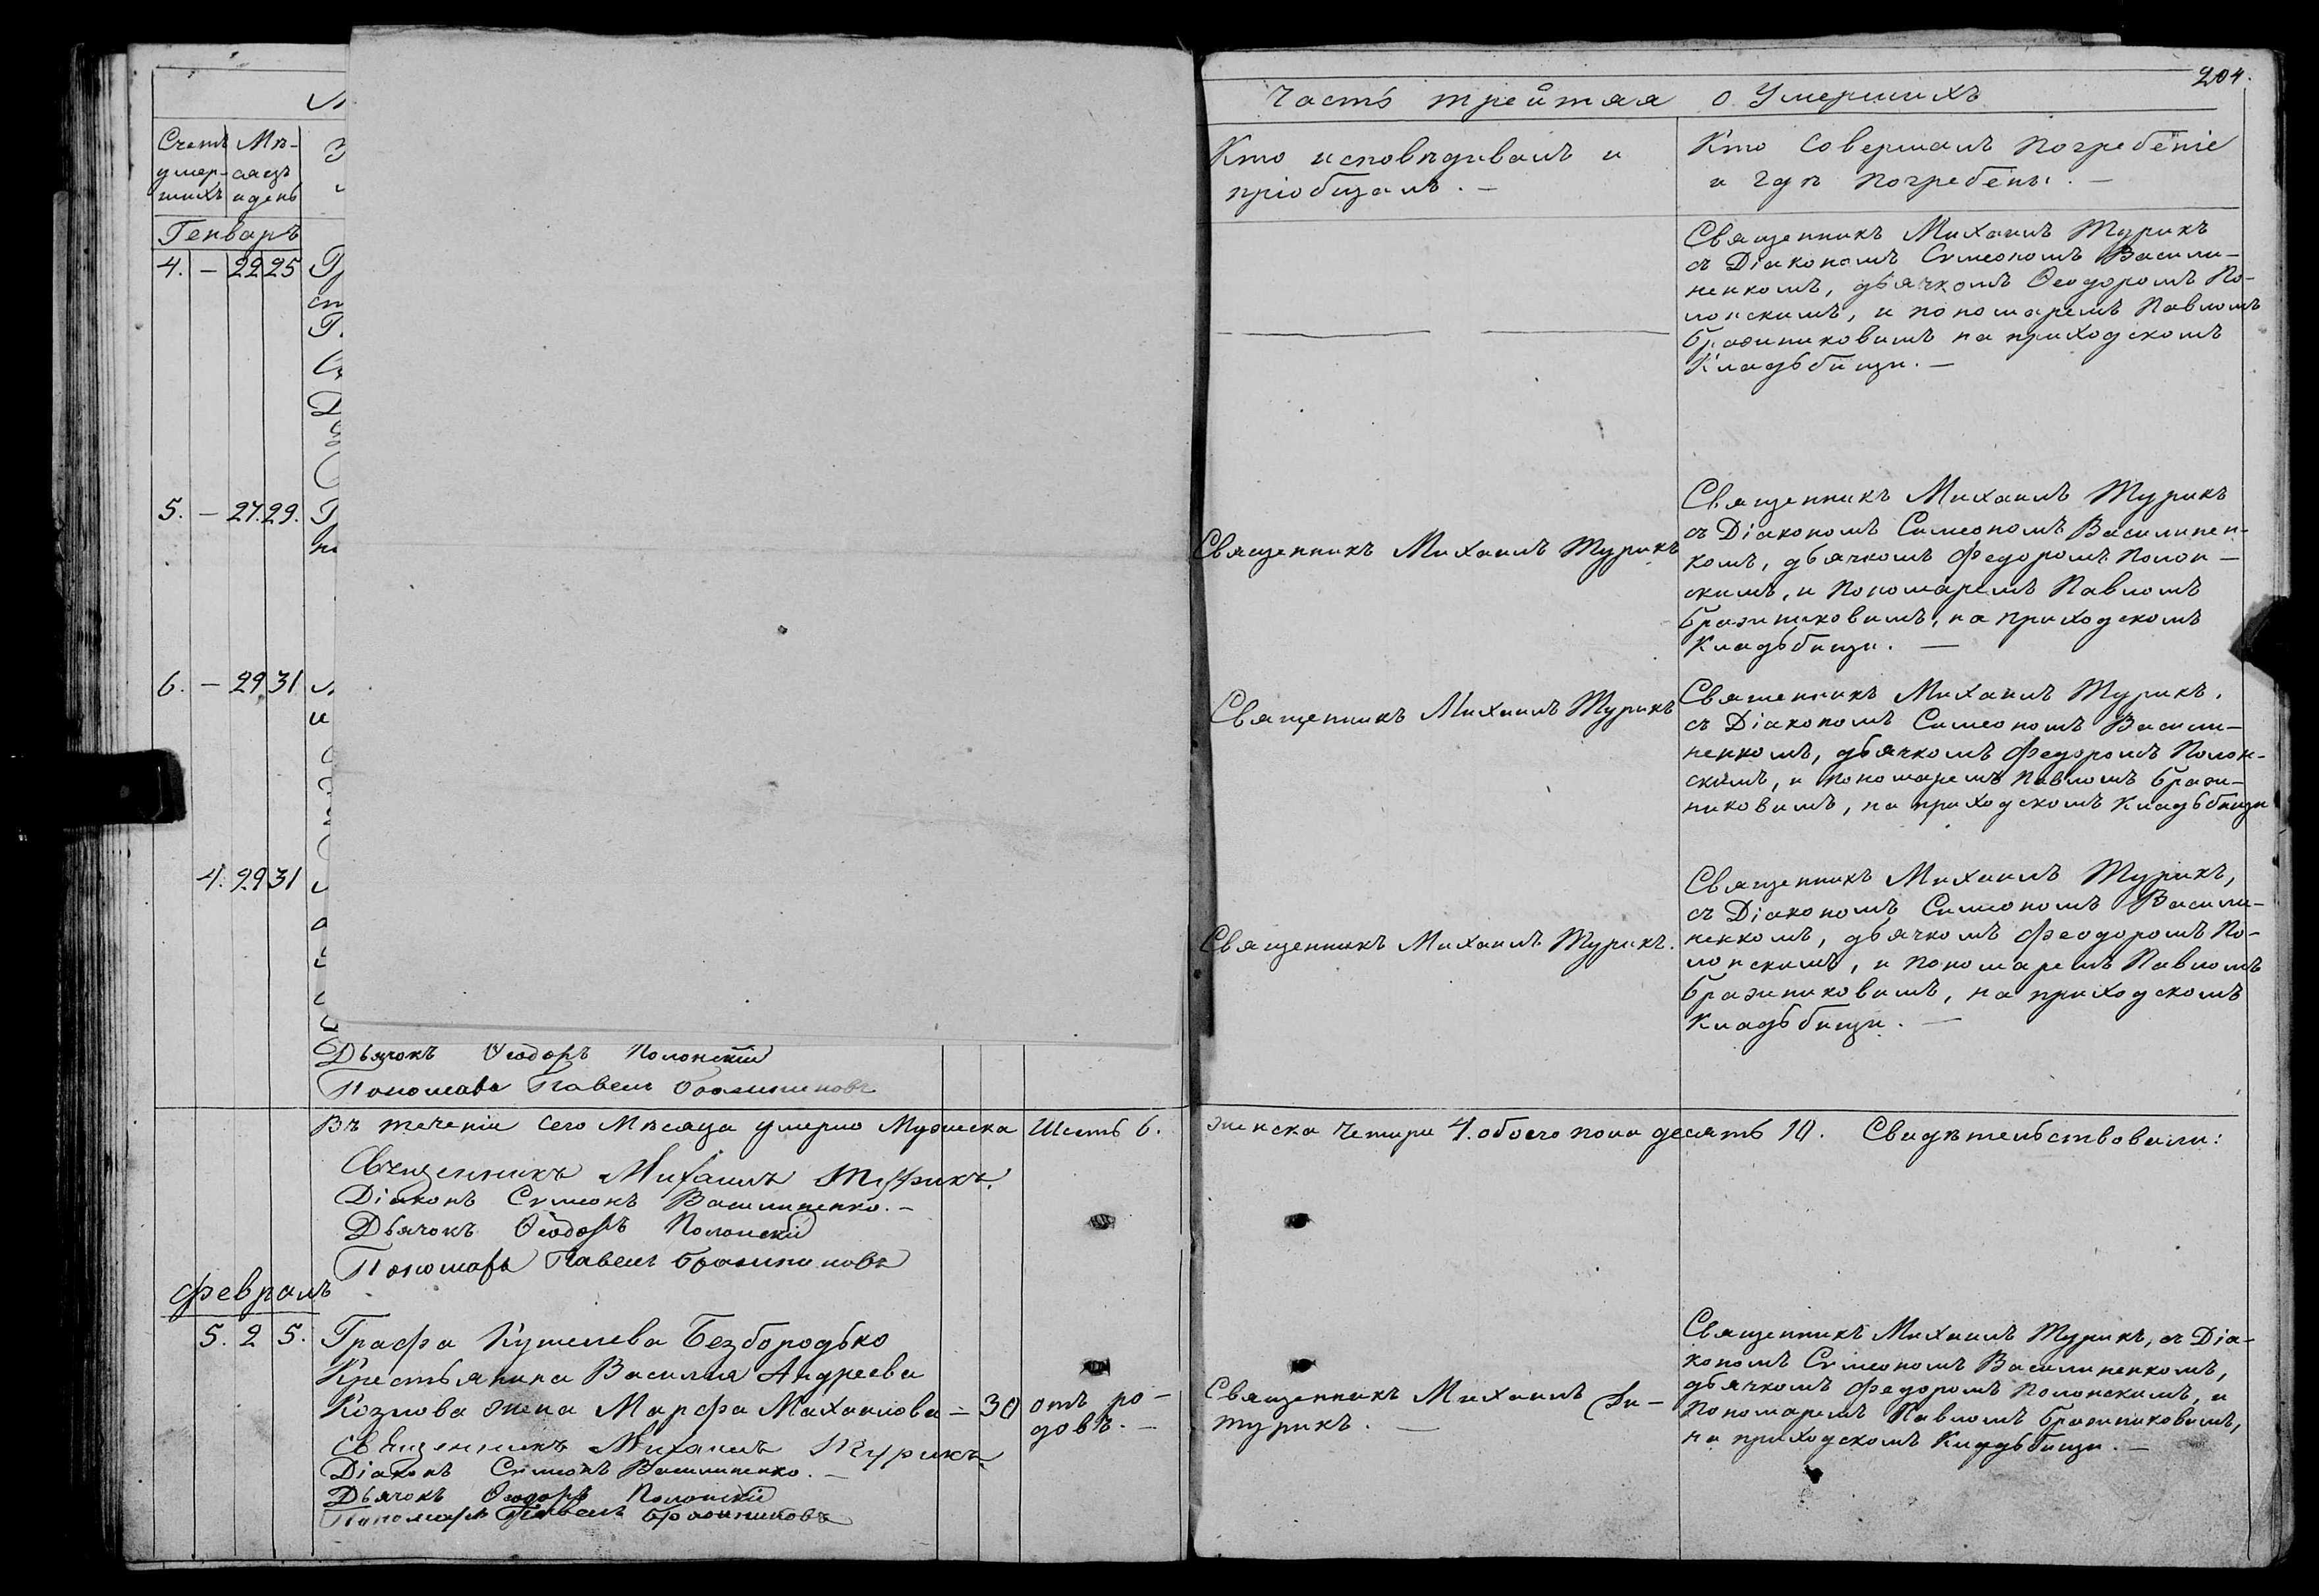 204.
Часть трейтяя о Умершихъ
Счетъ умер-шихъ
Мѣ-сяцъ и день
Кто исповѣдивалъ и
пріобщалъ. —
Кто Совершалъ погребѣніе
и гдѣ погребены. —
Генваръ
4. — 22 25
Священникъ Михаилъ Турикъ
съ Діакономъ Сѵмеономъ Васили-
ненкомъ, дьячкомъ Ѳеодоромъ По-
лонскимъ, и пономаремъ Павломъ
Бражниковимъ на приходскомъ
Кладьбищи. —
5. — 27. 29.
Священникъ Михаилъ Турикъ
Священникъ Михаилъ Турикъ
съ Діакономъ Симеономъ Василинен-
комъ, дьячкомъ Федоромъ Полон-
скимъ, и Пономаремъ Павломъ
Бражниковимъ, на приходскомъ
Кладьбищи. —
6. — 29 31
Священникъ Михаилъ Турикъ
Священникъ Михаилъ Турикъ.
съ Діакономъ Симеономъ Васили-
ненкомъ, дьячкомъ Федоромъ Полон-
скимъ, и пономаремъ Павломъ Бражи-
никовимъ, на приходскомъ Кладьбищи
4. 29 31
Священникъ Михаилъ Турикъ.
Священникъ Михаилъ Турикъ,
съ Діакономъ Симеономъ Васили-
ненкомъ, дьячкомъ Феодоромъ По-
лонскимъ, и пономаремъ Павломъ
Бражниковимъ, на приходскомъ
Кладьбищи. —
Дьячокъ Ѳеодоръ Полонскій
Пономарь Павелъ Бражниковъ
Въ теченіи сего Мѣсяца умерло Мужеска Шесть 6. женска Четири 4. обоего пола десять 10. Свидѣтельствовали:
Священникъ Михаилъ Турикъ.
Діаконъ Сѵмеонъ Василиненко. —
Дьячокъ Ѳеодоръ Полонскій
Пономарь Павелъ Бражниковъ
Февраль
5. 2 5.
Графа Кушелева Безбородько
Крестьянина Василия Андреева
Козлова жена Марфа Михаилова — 30
отъ ро-
довъ. —
Священникъ Михаилъ
Турикъ. —
Священникъ Михаилъ Турикъ, съ Діа-
кономъ Сѵмеономъ Василиненкомъ,
дьячкомъ Федоромъ Полонскимъ, и
Пономаремъ Павломъ Бражниковимъ,
на приходскомъ Кладьбищи. —
Священникъ Михаилъ Турикъ.
Діаконъ Сѵмеонъ Василиненко. —
Дьячокъ Ѳеодоръ Полонскій
Пономарь Павелъ Бражниковъ